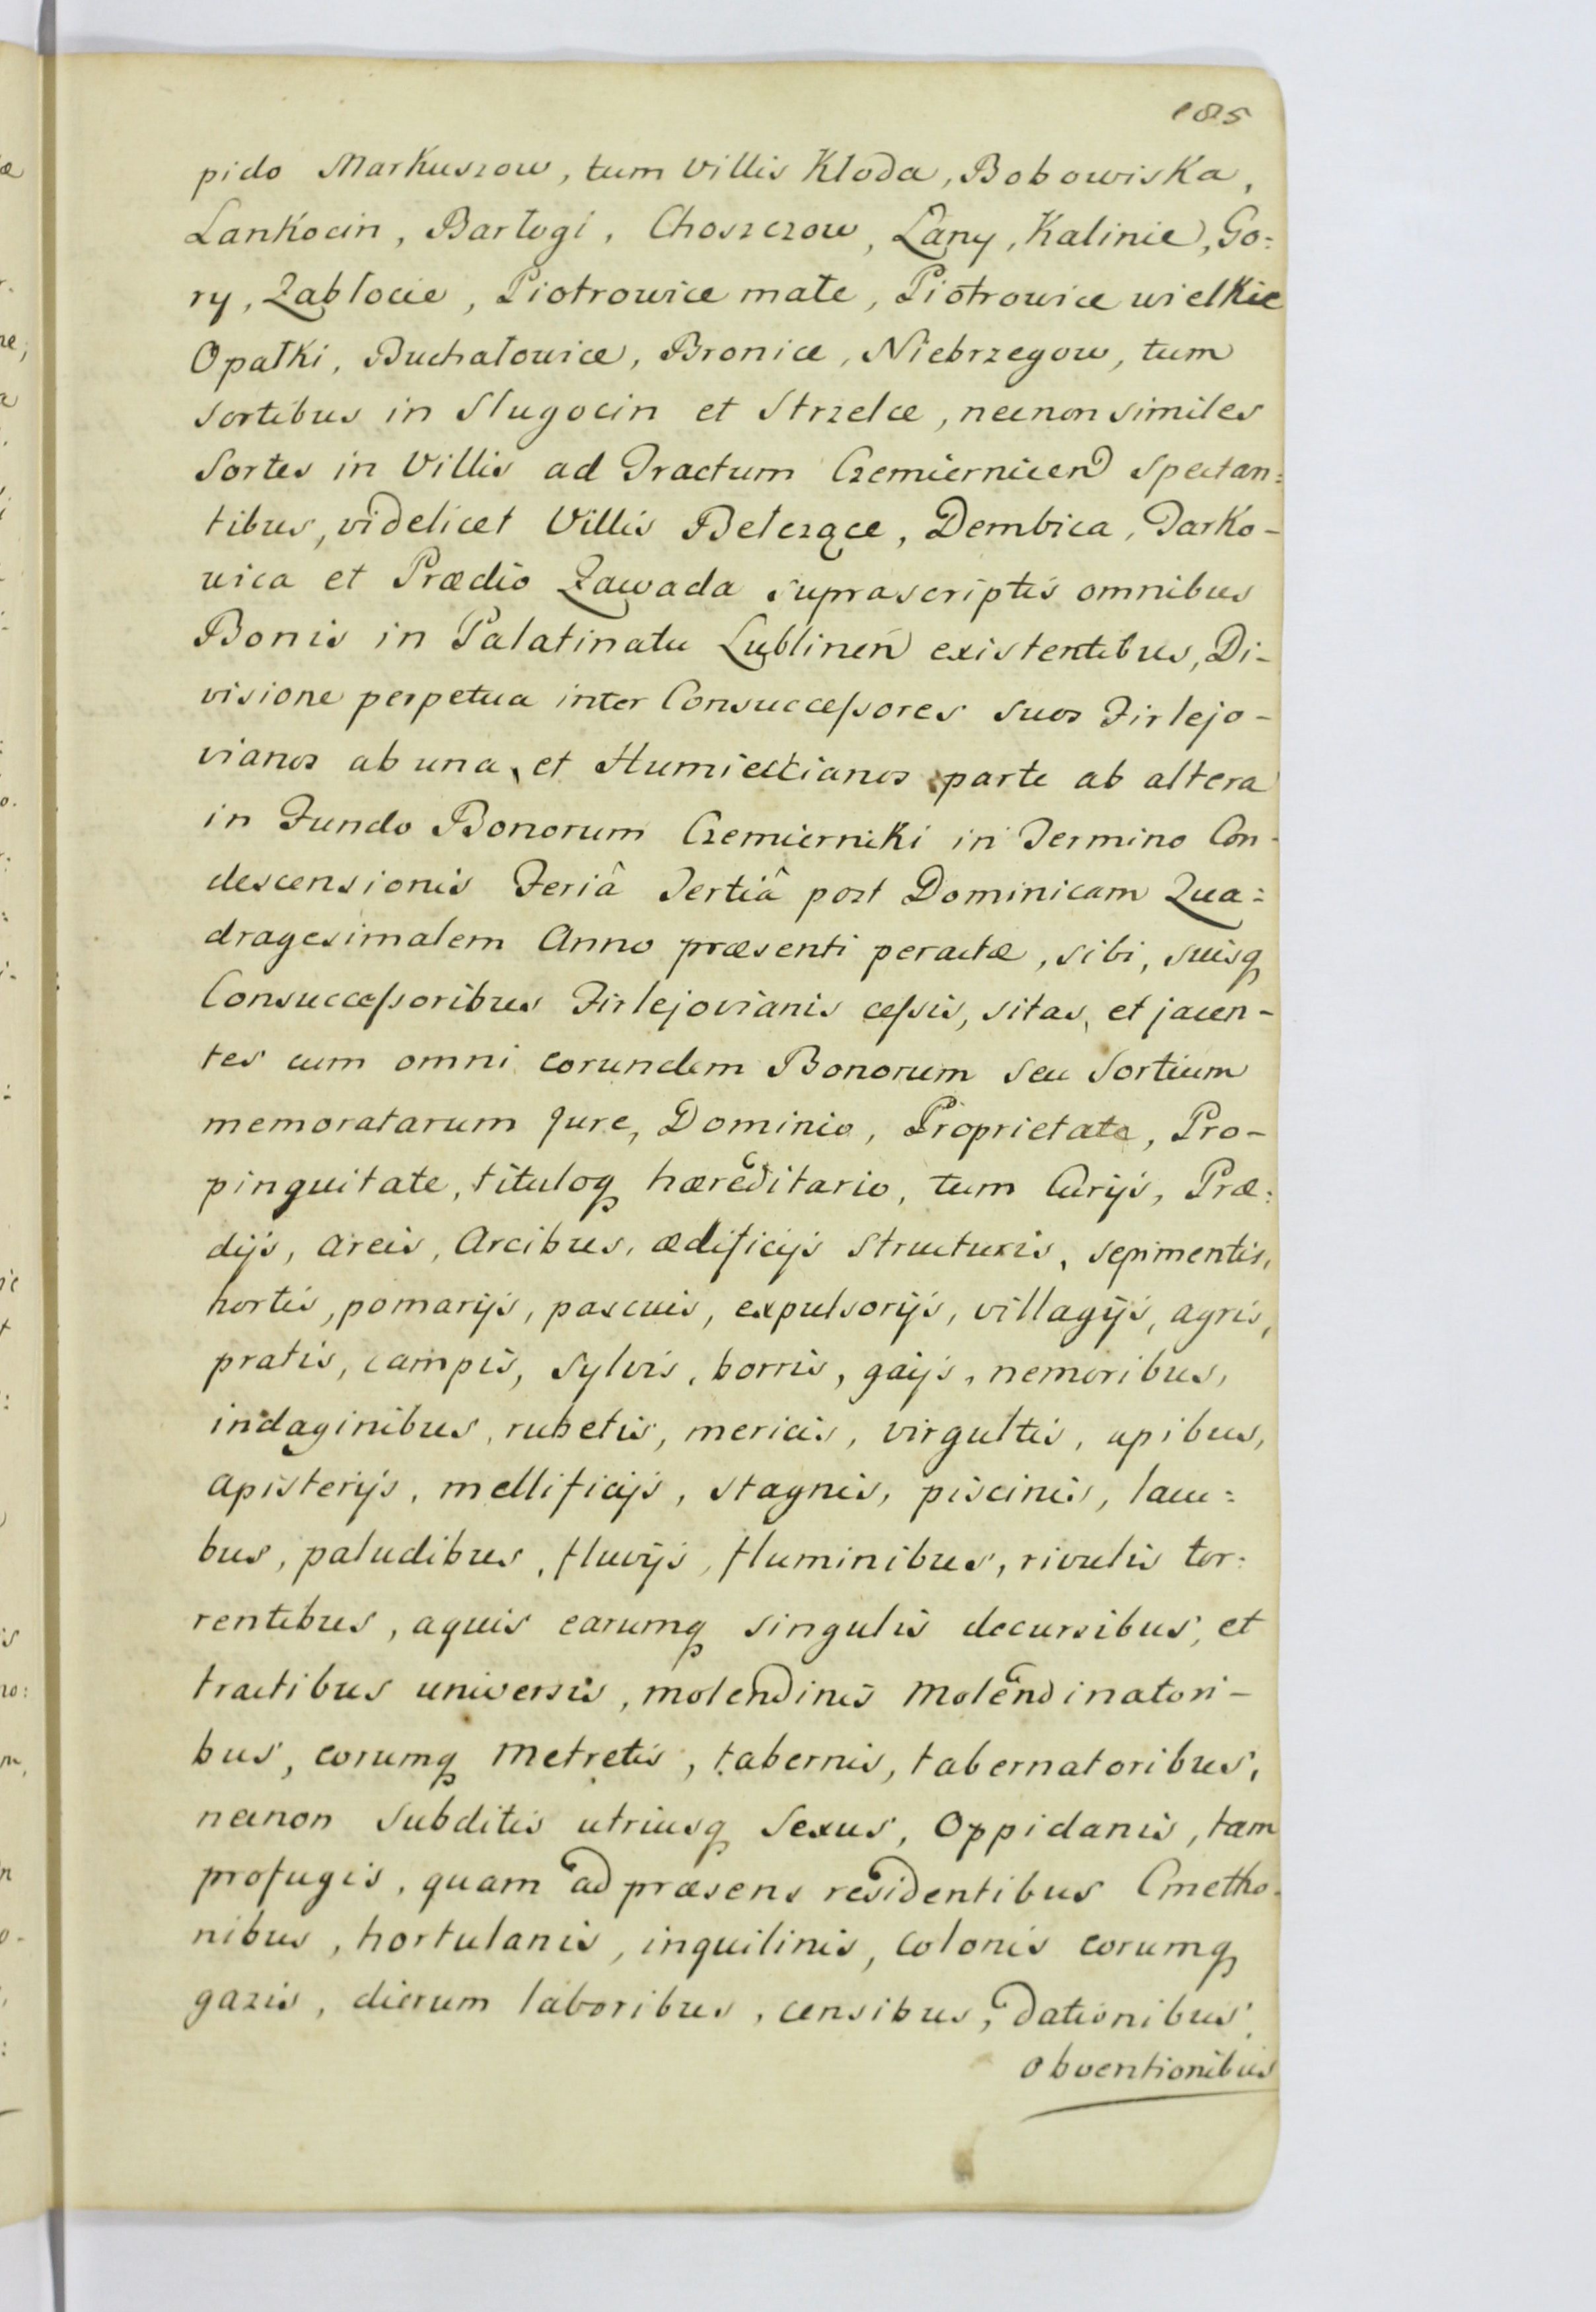 185
pido Markuszow, tum Villis Kloda, Bobowiska,
Lankocin, Barłogi, Choszczow, Łany, Kalinie, Go:
ry, Zabłocie, Piotrowice małe, Piotrowice wielkie
Opałki, Buchałowice, Bronice, Niebrzegow, tum
sortibus in Sługocin et Strzelce, necnon similes
Sortes in Villis ad Tractum Czemiernicen spectan:
tibus, videlicet Villis Bełczące, Dembica, Tarko-
wica et Prædio Zawada suprascriptis omnibus
Bonis in Palatinatu Lublinen existentibus, Di-
visione perpetua inter Consuccessores suos Firlejo-
vianos ab una, et Humiectianos parte ab altera
in Fundo Bonorum Czemierniki in Termino Con-
descensionis Feriâ Tertiâ post Dominicam Qua:
dragesimalem Anno præsenti peractæ, sibi, suisq
Consuccessoribus Firlejovianis cessis, sitas, et jacen-
tes cum omni eorundem Bonorum seu Sortium
memoratarum Jure, Dominio, Proprietate, Pro-
pinquitate, tituloq hæreditario, tum Curijs, Præ:
dijs, areis, Arcibus, ædificijs structuris, sepimentis,
hortis, pomarijs, pascuis, expulsorijs, villagijs, agris,
pratis, campis, sylvis, borris, gaijs, nemoribus,
indaginibus, rubetis, mericis, virgultis, apibus,
apisterijs, mellificijs, stagnis, piscinis, lacu:
bus, paludibus, fluvijs, fluminibus, rivulis tor:
rentibus, aquis earumq singulis decursibus, et
tractibus universis, molendinis molendinatori-
bus, eorumq metretis, tabernis, tabernatoribus,
necnon subditis utriusq Sexus, Oppidanis, tam
profugis, quam ad præsens residentibus Cmetho-
nibus, hortulanis, inquilinis, colonis eorumq
gazis, dierum laboribus, censibus, dationibus,
obventionibus